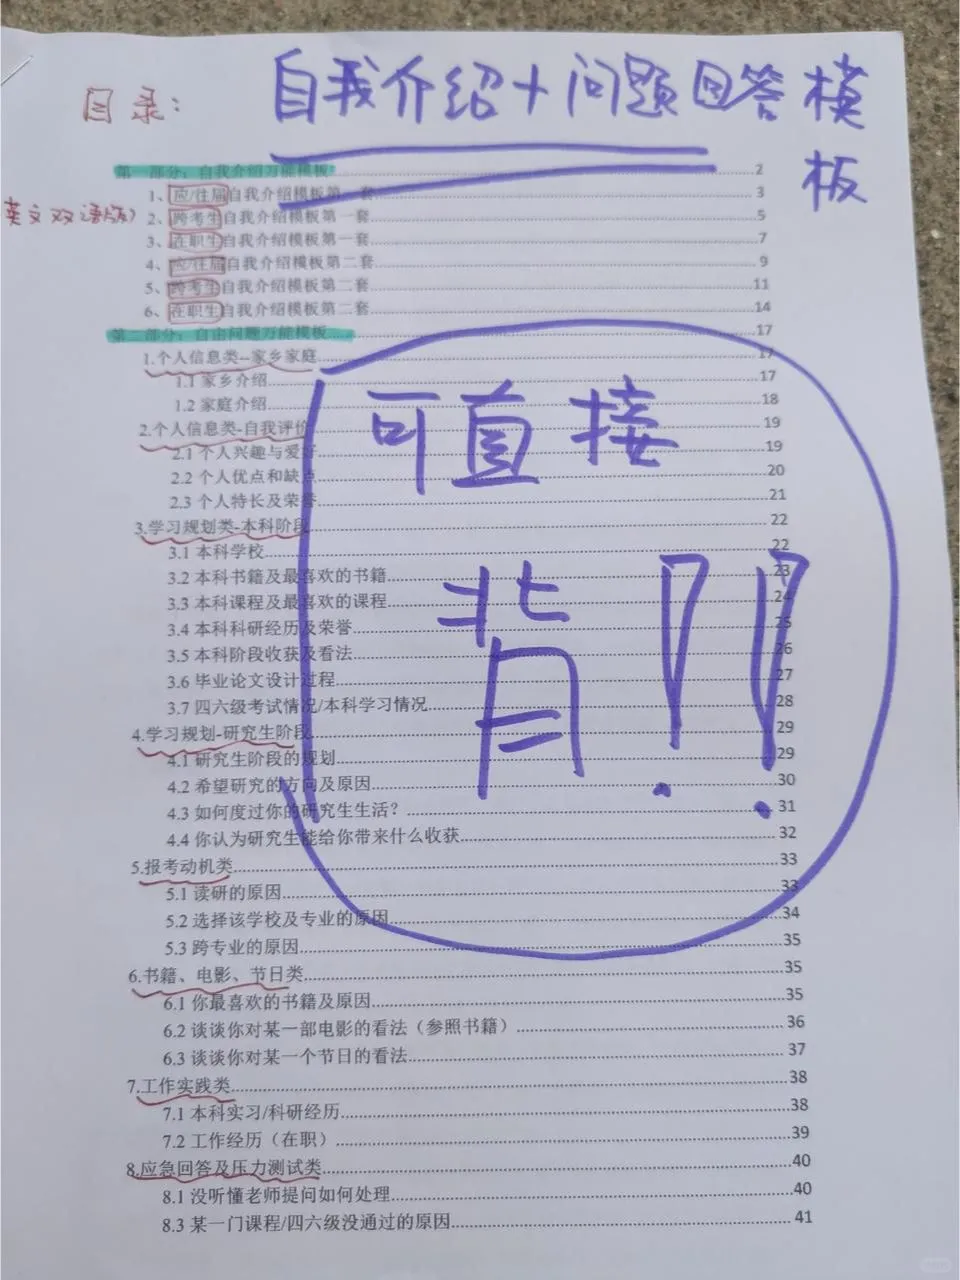 自我介绍+问题回答模板
目录:
第一部分:自我介绍万能模板 2
1、应/往届自我介绍模板第一套 3
英文双语版)
2、跨考生自我介绍模板第一套 5
3、在职生自我介绍模板第一套 7
4、应/往届自我介绍模板第二套 9
5、跨考生自我介绍模板第二套 11
6、在职生自我介绍模板第二套 14
第二部分:自由问题万能模板 17
1.个人信息类--家乡家庭 17
1.1 家乡介绍 17
1.2 家庭介绍 18
2.个人信息类-自我评价 19
2.1 个人兴趣与爱好 19
2.2 个人优点和缺点 20
2.3 个人特长及荣誉 21
3.学习规划类-本科阶段 22
3.1 本科学校 22
3.2 本科书籍及最喜欢的书籍 23
3.3 本科课程及最喜欢的课程 24
3.4 本科科研经历及荣誉 25
3.5 本科阶段收获及看法 26
3.6 毕业论文设计过程 27
3.7 四六级考试情况/本科学习情况 28
4.学习规划-研究生阶段 29
4.1 研究生阶段的规划 29
4.2 希望研究的方向及原因 30
4.3 如何度过你的研究生生活? 31
4.4 你认为研究生能给你带来什么收获 32
5.报考动机类 33
5.1 读研的原因 33
5.2 选择该学校及专业的原因 34
5.3 跨专业的原因 35
6.书籍、电影、节日类 35
6.1 你最喜欢的书籍及原因 35
6.2 谈谈你对某一部电影的看法(参照书籍) 36
6.3 谈谈你对某一个节日的看法 37
7.工作实践类 38
7.1 本科实习/科研经历 38
7.2 工作经历(在职) 39
8.应急回答及压力测试类 40
8.1 没听懂老师提问如何处理 40
8.3 某一门课程/四六级没通过的原因 41
可直接
背!!